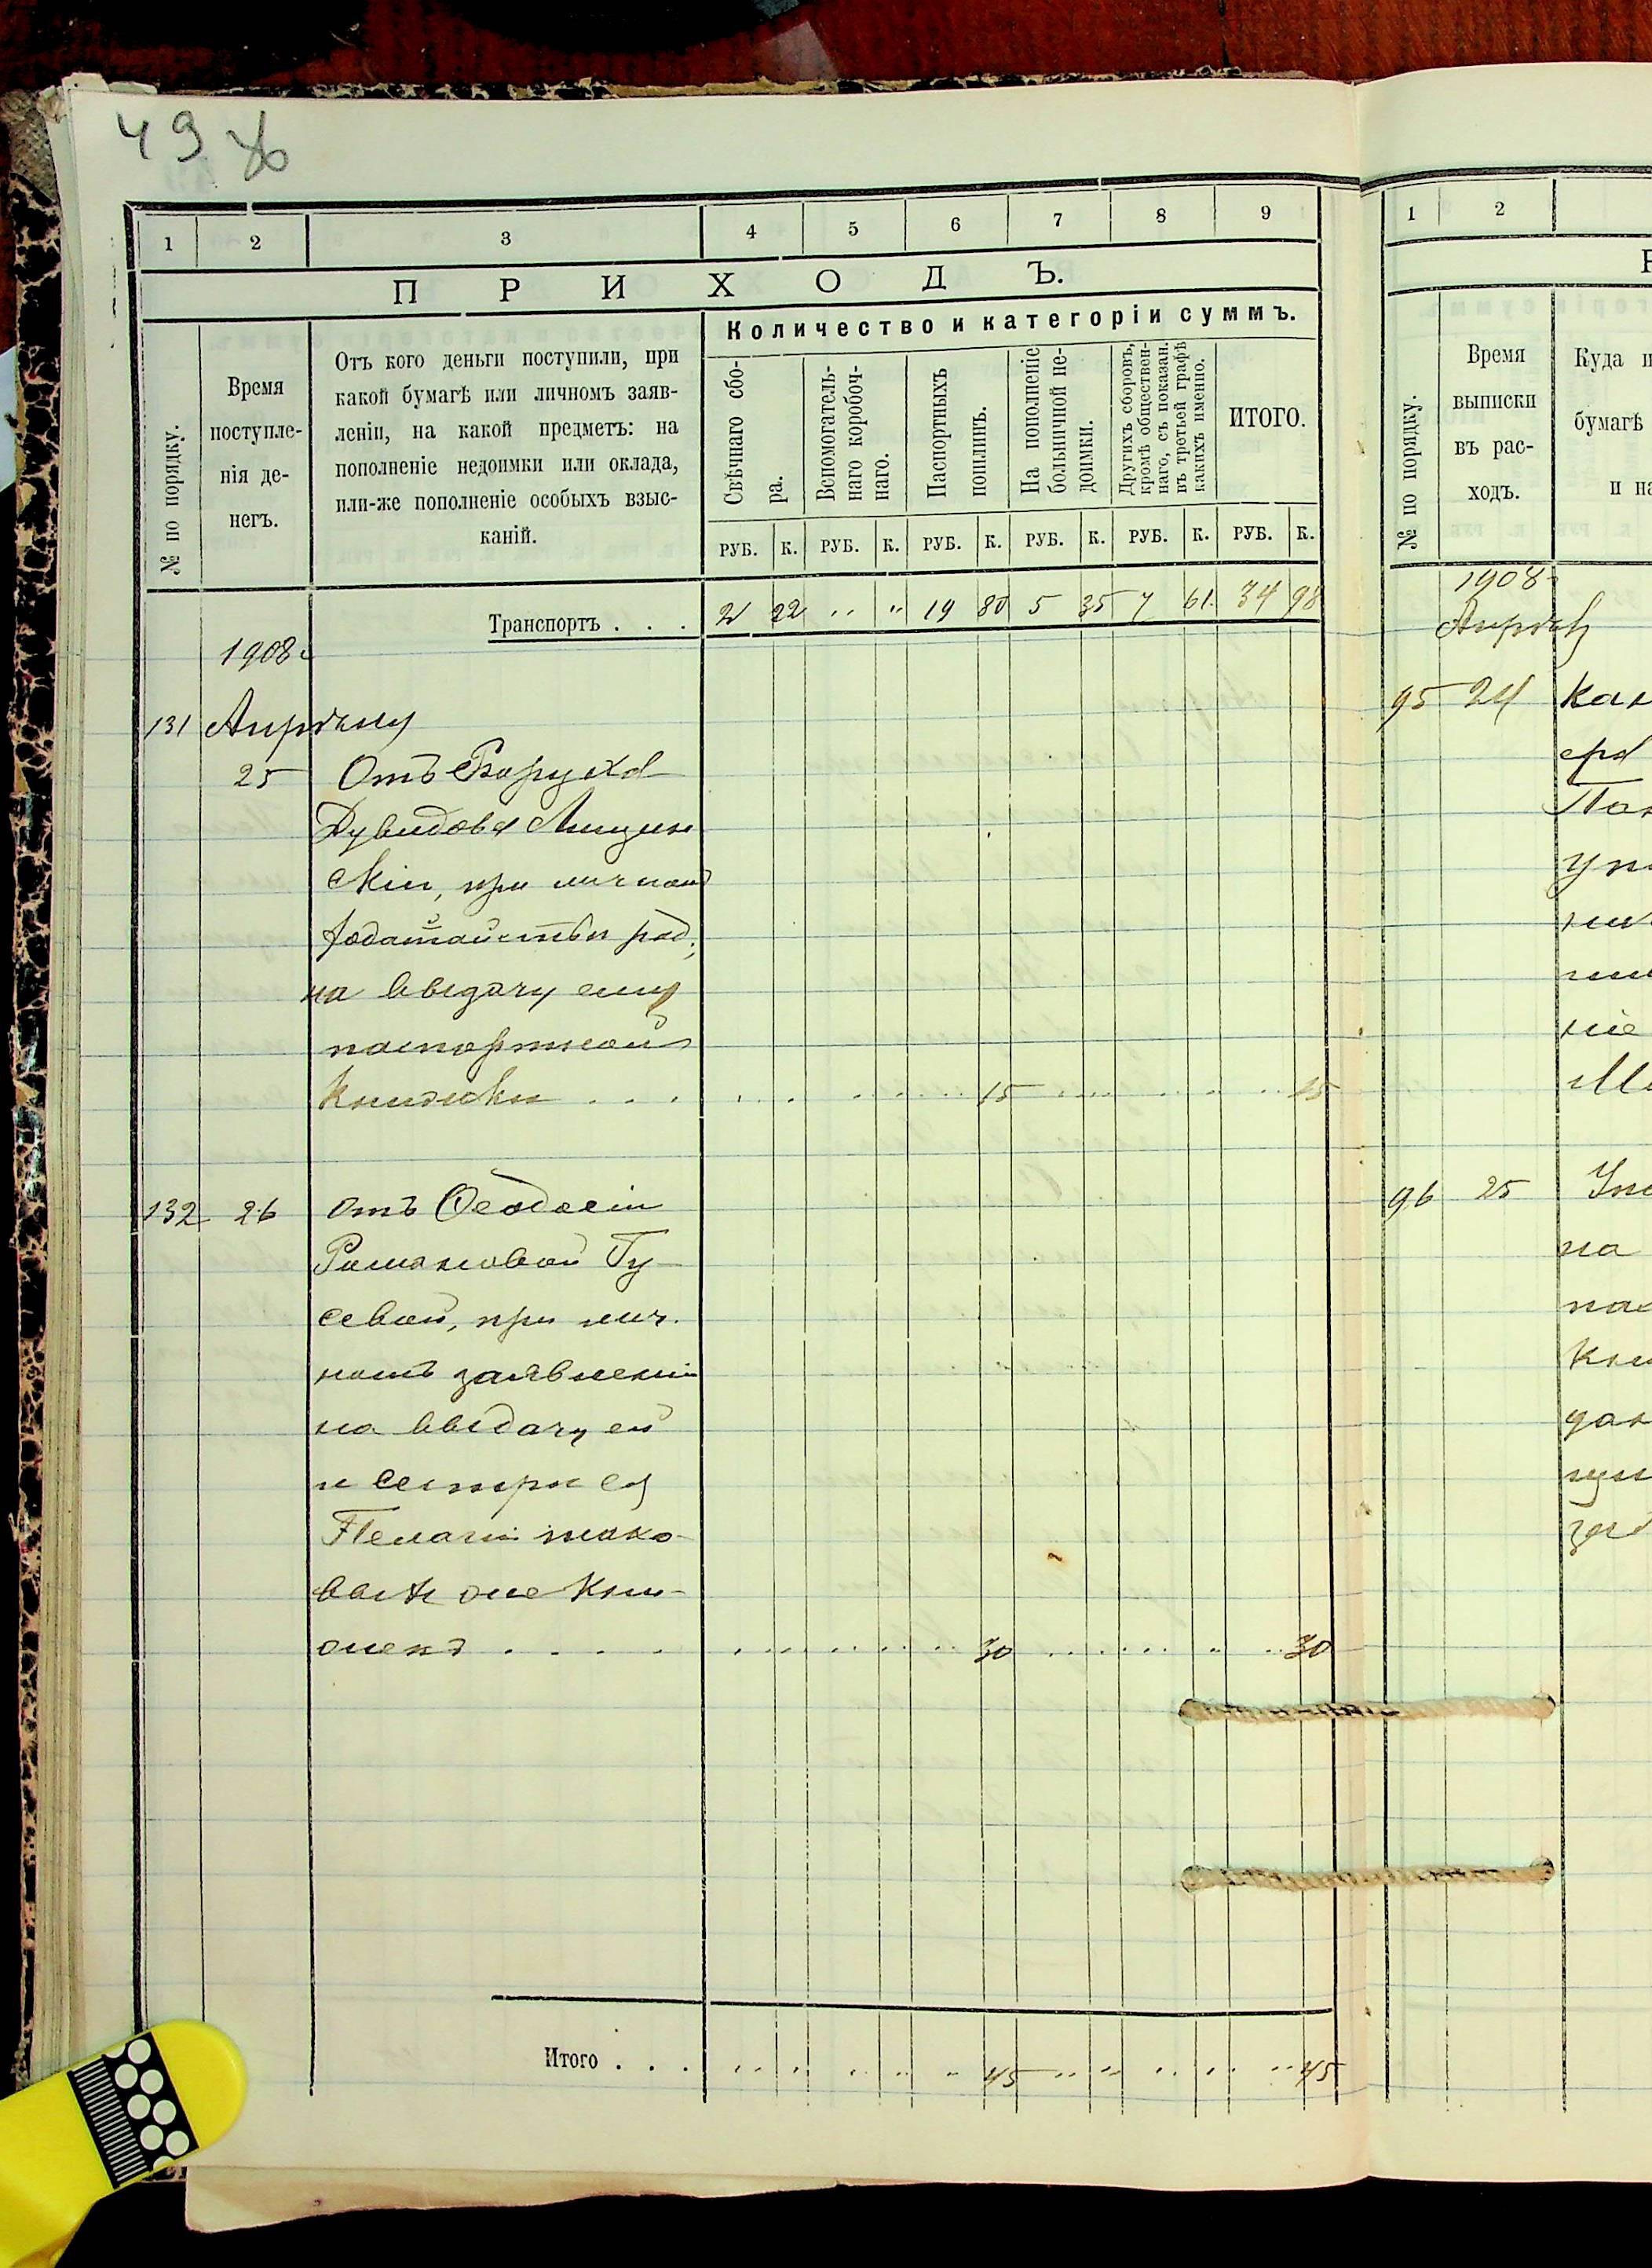 49 об
1 2 3 4 5 6 7 8 9
ПРИХОДЪ.
№ по порядку.
Время поступле-
нія де-
негъ.
Отъ кого деньги поступили, при
какой бумагѣ или личномъ заяв-
леніи, на какой предметъ: на
пополненіе недоимки или оклада,
или-же пополненіе особыхъ взыс-
каній.
Количество и категоріи суммъ.
Свѣчнаго сбо-
ра.
Вспомогатель-
наго коробоч-
наго.
Паспортныхъ
пошлинъ.
На пополненіе
больничной не-
доимки.
Другихъ сборовъ,
кромѣ обществен-
наго, съ показан.
въ третьей графѣ
какихъ именно.
ИТОГО.
РУБ. К. РУБ. К. РУБ. К. РУБ. К. РУБ. К. РУБ. К.
Транспортъ . . . 2 22 " " 19 80 5 35 7 61 34 98
1908
131 Апрѣля
25 Отъ Боруха
Дувидова
скій, при личномъ
ходатайствѣ
на выдачу ему
паспортной
книжки . . . 15 15
132 26 отъ Ѳеодосіи
Романовой Гу-
севой, при лич-
номъ заявленіи
на выдачу ей
и сестрѣ ея
Пелагіи тако-
выхъ же кни-
жекъ . . . . 30 30
Итого . . . 45 45
1 2
№ по порядку.
Время
выписки
въ рас-
ходъ.
Куда и
бумагѣ
и на
1908
Апрѣль
95 24
96 25
на